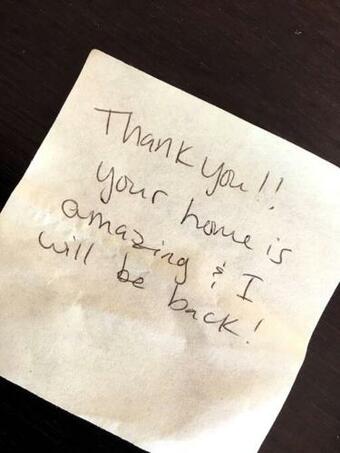 Thank you!!
your home is
amazing & I
will be back!